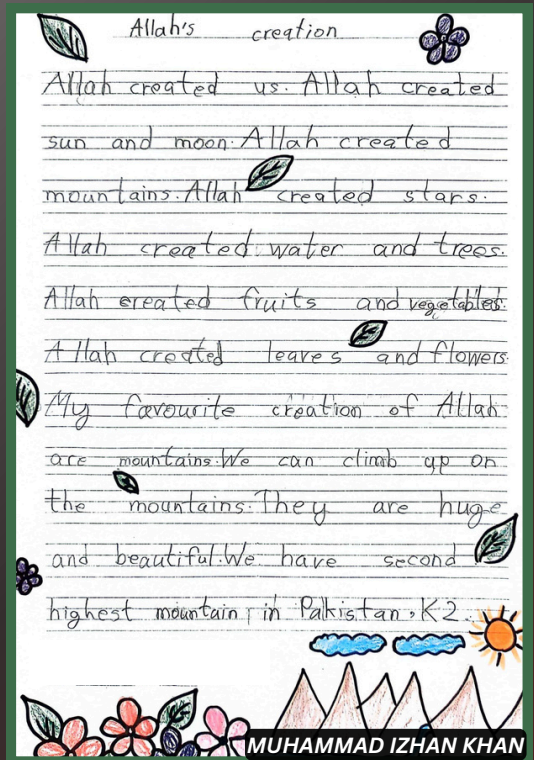 Allah's creation
Allah created us. Allah created
sun and moon. Allah created
mountains. Allah created stars.
Allah created water and trees.
Allah created fruits and vegetables.
Allah created leaves and flowers.
My favourite creation of Allah
are mountains. We can climb up on
the mountains. They are huge
and beautiful. We have second
highest mountain, in Pakistan, K2.
MUHAMMAD IZHAN KHAN